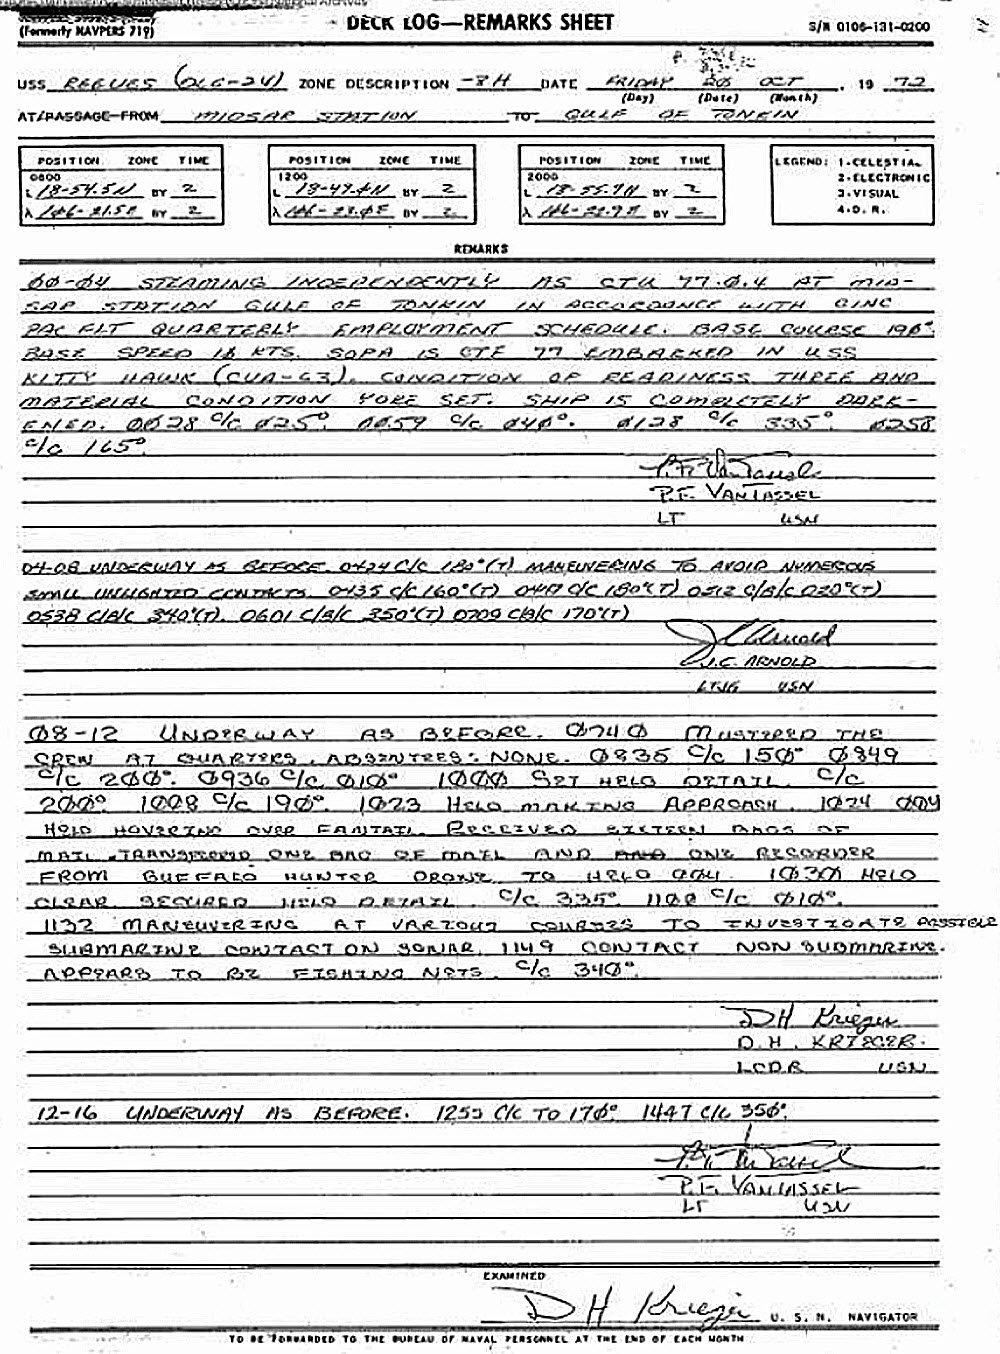 (Formerly NAVPERS 719)
DECK LOG—REMARKS SHEET
S/N 0106-131-0200
USS REEVES (DLG-24) ZONE DESCRIPTION -8H DATE FRIDAY 20 OCT , 19 72
(Day) (Date) (Month)
AT/PASSAGE—FROM MIDSAR STATION TO GULF OF TONKIN
POSITION ZONE TIME
0800
L 18-54.5N BY 2
λ 106-21.5E BY 2
POSITION ZONE TIME
1200
L 18-49.4N BY 2
λ 106-23.0E BY 2
POSITION ZONE TIME
2000
L 18-55.7N BY 2
λ 106-22.9E BY 2
LEGEND: 1-CELESTIAL
2-ELECTRONIC
3-VISUAL
4-D. R.
REMARKS
00-04 STEAMING INDEPENDENTLY AS CTU 77.0.4 AT MID-
SAR STATION GULF OF TONKIN IN ACCORDANCE WITH CINC
PAC FLT QUARTERLY EMPLOYMENT SCHEDULE. BASE COURSE 190°.
BASE SPEED 18 KTS. SOPA IS CTF 77 EMBARKED IN USS
KITTY HAWK (CVA-63). CONDITION OF READINESS THREE AND
MATERIAL CONDITION YOKE SET. SHIP IS COMPLETELY DARK-
ENED. 0028 C/C 025°. 0059 C/C 040°. 0128 C/C 335°. 0258
C/C 165°.
P.F. VanTassel
P.F. VANTASSEL
LT USN
04-08 UNDERWAY AS BEFORE. 0424 C/C 180°(T) MANEUVERING TO AVOID NUMEROUS
SMALL UNLIGHTED CONTACTS. 0435 C/C 160°(T) C/C 180°(T) 0512 C/B/C 020°(T)
0538 C/B/C 340°(T). 0601 C/B/C 350°(T) 0709 C/B/C 170°(T)
J C Arnold
J.C. ARNOLD
LTJG USN
08-12 UNDERWAY AS BEFORE. 0740 MUSTERED THE
CREW AT QUARTERS. ABSENTEES: NONE. 0835 C/C 150° 0849
C/C 200°. 0936 C/C 010° 1000 SET HELO DETAIL. C/C
200°. 1008 C/C 190°. 1023 HELO MAKING APPROACH. 1024 004
HELO HOVERING OVER FANTAIL. RECEIVED SIXTEEN BAGS OF
MAIL. TRANSFERED ONE BAG OF MAIL AND ONE RECORDER
FROM BUFFALO HUNTER DRONE TO HELO 004. 1030 HELO
CLEAR. SECURED HELO DETAIL. C/C 335°. 1100 C/C 010°.
1132 MANEUVERING AT VARIOUS COURSES TO INVESTIGATE POSSIBLE
SUBMARINE CONTACT ON SONAR. 1149 CONTACT NON SUBMARINE.
APPEARS TO BE FISHING NETS. C/C 340°.
D H Krieger
D.H. KRIEGER.
LCDR USN
12-16 UNDERWAY AS BEFORE. 1255 C/C TO 170°. 1447 C/C 350°.
P.F. VanTassel
P.F. VANTASSEL
LT USN
EXAMINED
D H Krieger U. S. N. NAVIGATOR
TO BE FORWARDED TO THE BUREAU OF NAVAL PERSONNEL AT THE END OF EACH MONTH